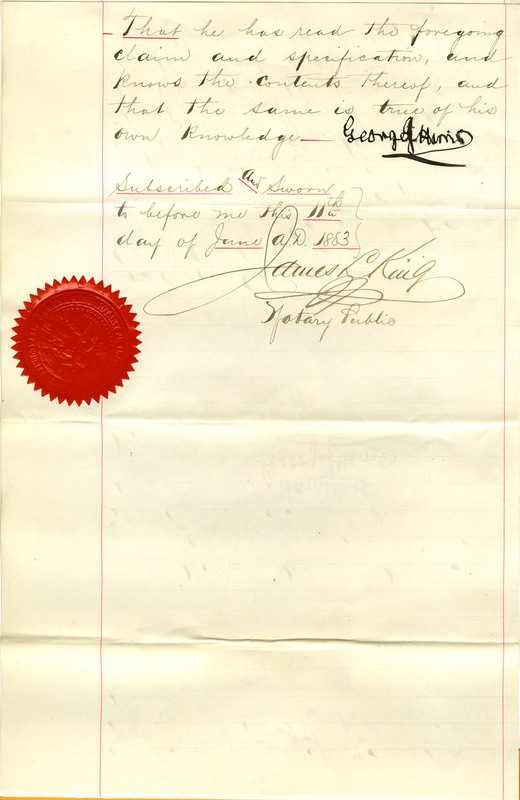 That he has read the foregoing
claim and specification, and
knows the contents thereof, and
that the same is true of his
own knowledge
George J Harris
Subscribed and Sworn
to before me this 11th
day of June A.D. 1883
James L King
Notary Public